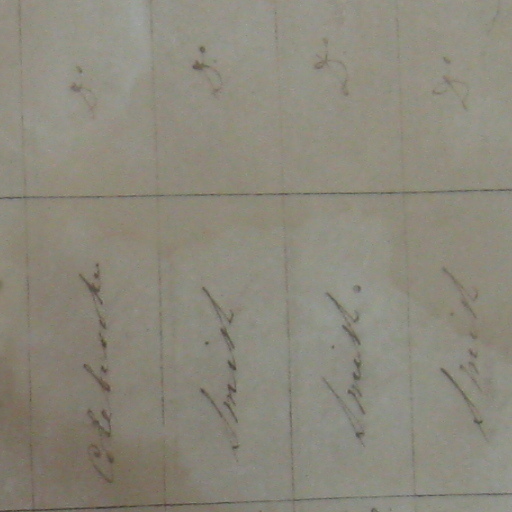 Colebrooke Do.
Smith Do.
Smith. Do.
Smith Do.